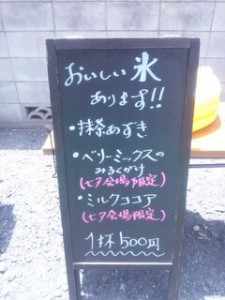 おいしい氷
あります!!
・抹茶あずき
・ベリーミックスの
みるくがけ
(七夕会場限定)
・ミルクココア
(七夕会場限定)
1杯500円